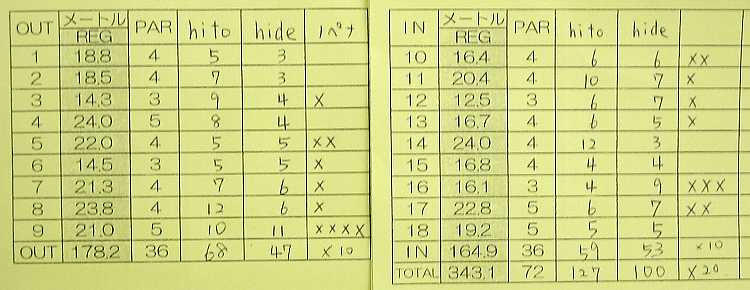 OUT メートル REG PAR hito hide 1ペナ
1 18.8 4 5 3
2 18.5 4 7 3
3 14.3 3 9 4 ×
4 24.0 5 8 4
5 22.0 4 5 5 ××
6 14.5 3 5 5 ×
7 21.3 4 7 6 ×
8 23.8 4 12 6 ×
9 21.0 5 10 11 ××××
OUT 178.2 36 68 47 ×10
IN メートル REG PAR hito hide
10 16.4 4 6 6 ××
11 20.4 4 10 7 ×
12 12.5 3 6 7 ×
13 16.7 4 6 5 ×
14 24.0 4 12 3
15 16.8 4 4 4
16 16.1 3 4 9 ×××
17 22.8 5 6 7 ××
18 19.2 5 5 5
IN 164.9 36 59 53 ×10
TOTAL 343.1 72 127 100 ×20